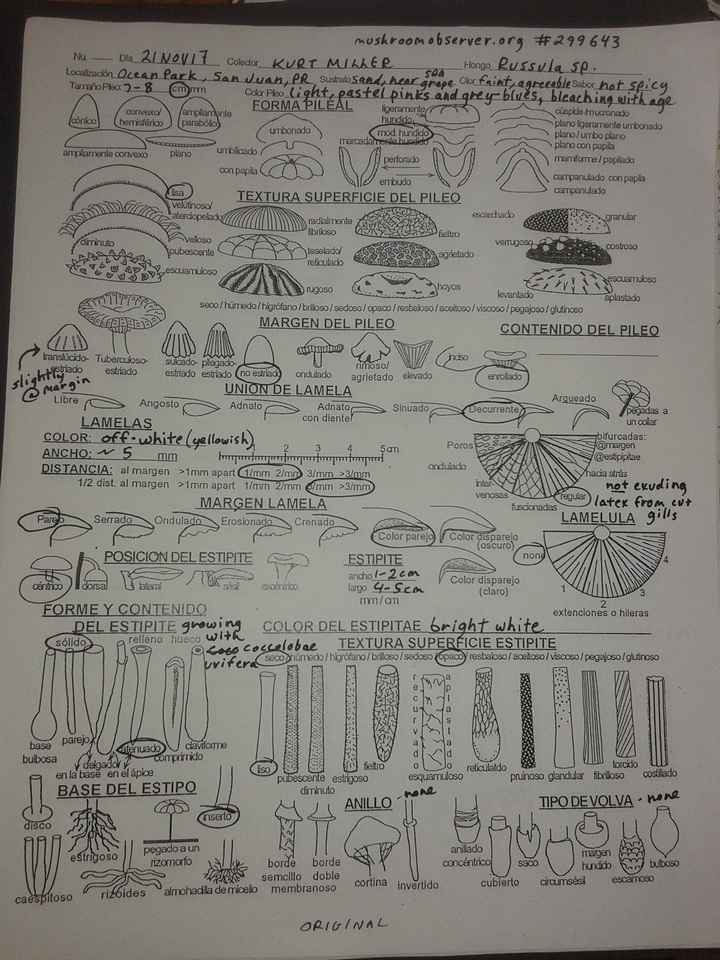 mushroomobserver.org #299643
Nu. Día 21NOV17 Colector KURT MILLER Hongo Russula sp.
Localización Ocean Park, San Juan, PR Sustrato sand, near sea grape Olor faint, agreeable Sabor not spicy
Tamaño Pileo: 7-8 cm mm Color Pileo light, pastel pinks and grey-blues, bleaching with age
FORMA PILEAL
cónico convexo/ hemisférico ampliamente parabólico
ampliamente convexo plano
umbonado
umbilicado
con papila
ligeramente hundido
mod. hundido
marcadamente hundido
perforado
embudo
cúspide/mucronado
plano ligeramente umbonado
plano / umbo plano
plano con papila
mamiforme / papilado
campanulado con papila
campanulado
TEXTURA SUPERFICIE DEL PILEO
lisa
velútinoso/ aterciopelado
velloso
diminuto pubescente
escuamuloso
radialmente fibriloso
teselado/ reticulado
rugoso
fieltro
agrietado
hoyos
escarchado granular
verrugoso costroso
levantado escuamuloso aplastado
seco / húmedo / higrófano / brilloso / sedoso / opaco / resbaloso / aceitoso / viscoso / pegajoso / glutinoso
MARGEN DEL PILEO CONTENIDO DEL PILEO
translúcido-estriado Tuberculoso-estriado sulcado-estriado plegado-estriado no estriado ondulado rimoso/ agrietado elevado inciso enrollado
slightly @ margin
UNION DE LAMELA
Libre Angosto Adnato Adnato con diente Sinuado Decurrente Arqueado pegadas a un collar
LAMELAS
COLOR: off-white (yellowish)
ANCHO: ~ 5 mm 1 2 3 4 5cm
DISTANCIA: al margen >1mm apart 1/mm 2/mm 3/mm >3/mm
1/2 dist. al margen >1mm apart 1/mm 2/mm 3/mm >3/mm
Poros
ondulado
inter-venosas
fuscionadas
regular
bifurcadas: @margen @estipitae
hacia atrás
not exuding latex from cut gills
MARGEN LAMELA
Parejo Serrado Ondulado Erosionado Crenado Color parejo Color disparejo (oscuro)
Color disparejo (claro)
LAMELULA
none
1 2 3 4
extenciones o hileras
POSICION DEL ESTIPITE
céntrico dorsal lateral sésil excéntrico
ESTIPITE
ancho 1-2cm
largo 4-5cm
mm / cm
FORME Y CONTENIDO
DEL ESTIPITE growing with coccolobae uvifera
COLOR DEL ESTIPITAE bright white
TEXTURA SUPERFICIE ESTIPITE
sólido relleno hueco
seco / húmedo / higrófano / brilloso / sedoso / opaco / resbaloso / aceitoso / viscoso / pegajoso / glutinoso
base bulbosa parejo delgado en la base atenuado en el ápice comprimido claviforme
liso pubescente diminuto estrigoso fieltro
recurvado aplastado
esquamuloso reticulatdo pruinoso glandular fibriloso torcido costillado
BASE DEL ESTIPO
disco estrigoso pegado a un rizomorfo inserto
caespitoso rizoides almohadilla de micelio
ANILLO - none
borde semcillo borde doble membranoso cortina invertido
anillado concéntrico
TIPO DE VOLVA - none
cubierto saco circumsésil margen hundido escamoso bulboso
ORIGINAL